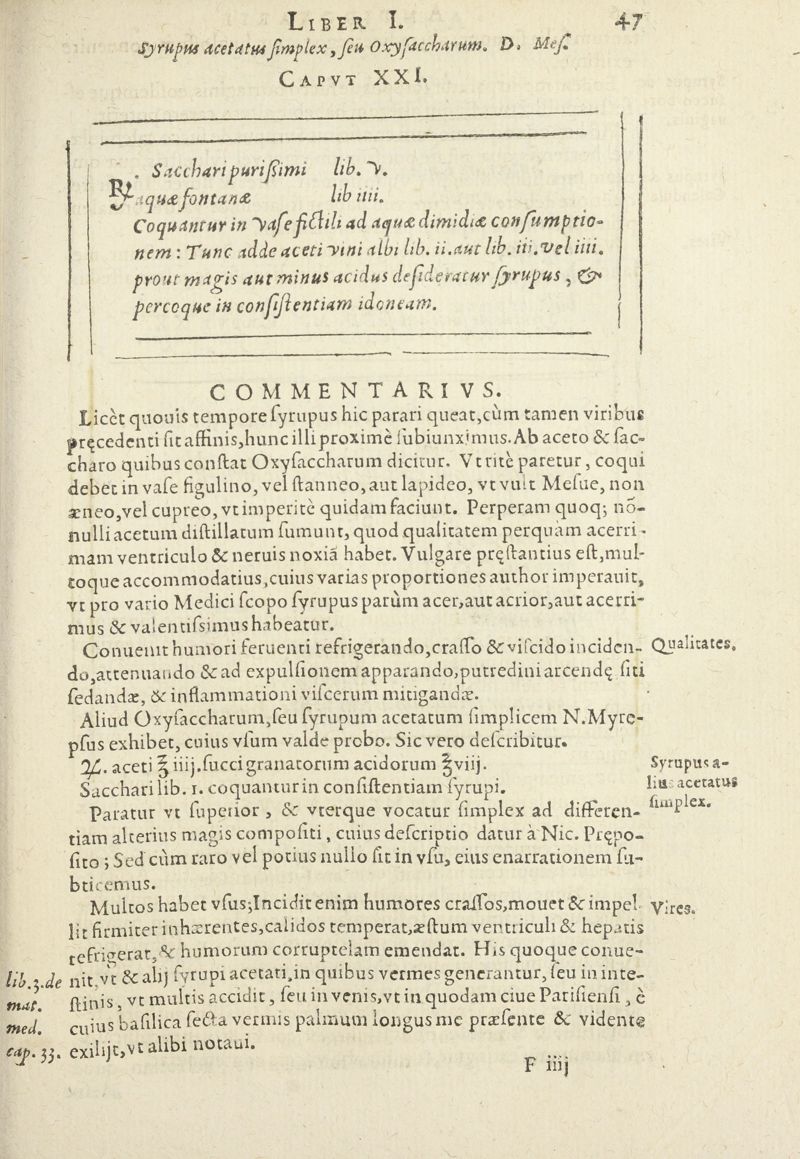 LIBER I. 47
Syrupus acetatus ſimplex, ſeu Oxyſaccharum. D. Meſ.
CAPVT XXI.
℞. Sacchari puriſſimi lib. v.
aquæ fontanæ lib iiii.
Coquantur in vaſe fictili ad aquæ dimidiæ conſumptio-
nem: Tunc adde aceti vini albi lib. ii. aut lib. iii. vel iiii.
prout magis aut minus acidus deſideratur ſyrupus, &
percoque in conſiſtentiam idoneam.
COMMENTARIVS.
Licèt quouis tempore ſyrupus hic parari queat, cùm tamen viribus
pręcedenti ſit affinis, hunc illi proximè ſubiunximus. Ab aceto & ſac-
charo quibus conſtat Oxyſaccharum dicitur. Vt ritè paretur, coqui
debet in vaſe figulino, vel ſtanneo, aut lapideo, vt vult Meſue, non
æneo, vel cupreo, vt imperitè quidam faciunt. Perperam quoq; nō-
nulli acetum diſtillatum ſumunt, quod qualitatem perquàm acerri-
mam ventriculo & neruis noxiā habet. Vulgare pręſtantius eſt, mul-
toque accommodatius, cuius varias proportiones author imperauit,
vt pro vario Medici ſcopo ſyrupus parùm acer, aut acrior, aut acerri-
mus & valentiſsimus habeatur.
Conuenit humori feruenti refrigerando, craſſo & viſcido inciden-
Qualitates.
do, attenuando & ad expulſionem apparando, putredini arcendę ſiti
ſedandæ, & inflammationi viſcerum mitigandæ.
Aliud Oxyſaccharum, ſeu ſyrupum acetatum ſimplicem N. Myre-
pſus exhibet, cuius vſum valde probo. Sic vero deſcribitur.
♃. aceti ℥iiij. ſucci granatorum acidorum ℥viij.
Syrupus a-
Sacchari lib. 1. coquantur in conſiſtentiam ſyrupi.
lius acetatus
Paratur vt ſuperior, & vterque vocatur ſimplex ad differen-
ſimplex.
tiam alterius magis compoſiti, cuius deſcriptio datur à Nic. Prępo-
ſito; Sed cùm raro vel potius nullo ſit in vſu, eius enarrationem ſu-
bticemus.
Multos habet vſus; Incidit enim humores craſſos, mouet & impel-
Vires.
lit firmiter inhærentes, calidos temperat, æſtum ventriculi & hepatis
refrigerat, & humorum corruptelam emendat. His quoque conue-
lib. 3. de
nit, vt & alij ſyrupi acetati, in quibus vermes generantur, ſeu in inte-
mat.
ſtinis, vt multis accidit, ſeu in venis, vt in quodam ciue Pariſienſi, è
med.
cuius baſilica ſecta vermis palmum longus me præſente & vidente
cap. 33.
exilijt, vt alibi notaui.
F iiij